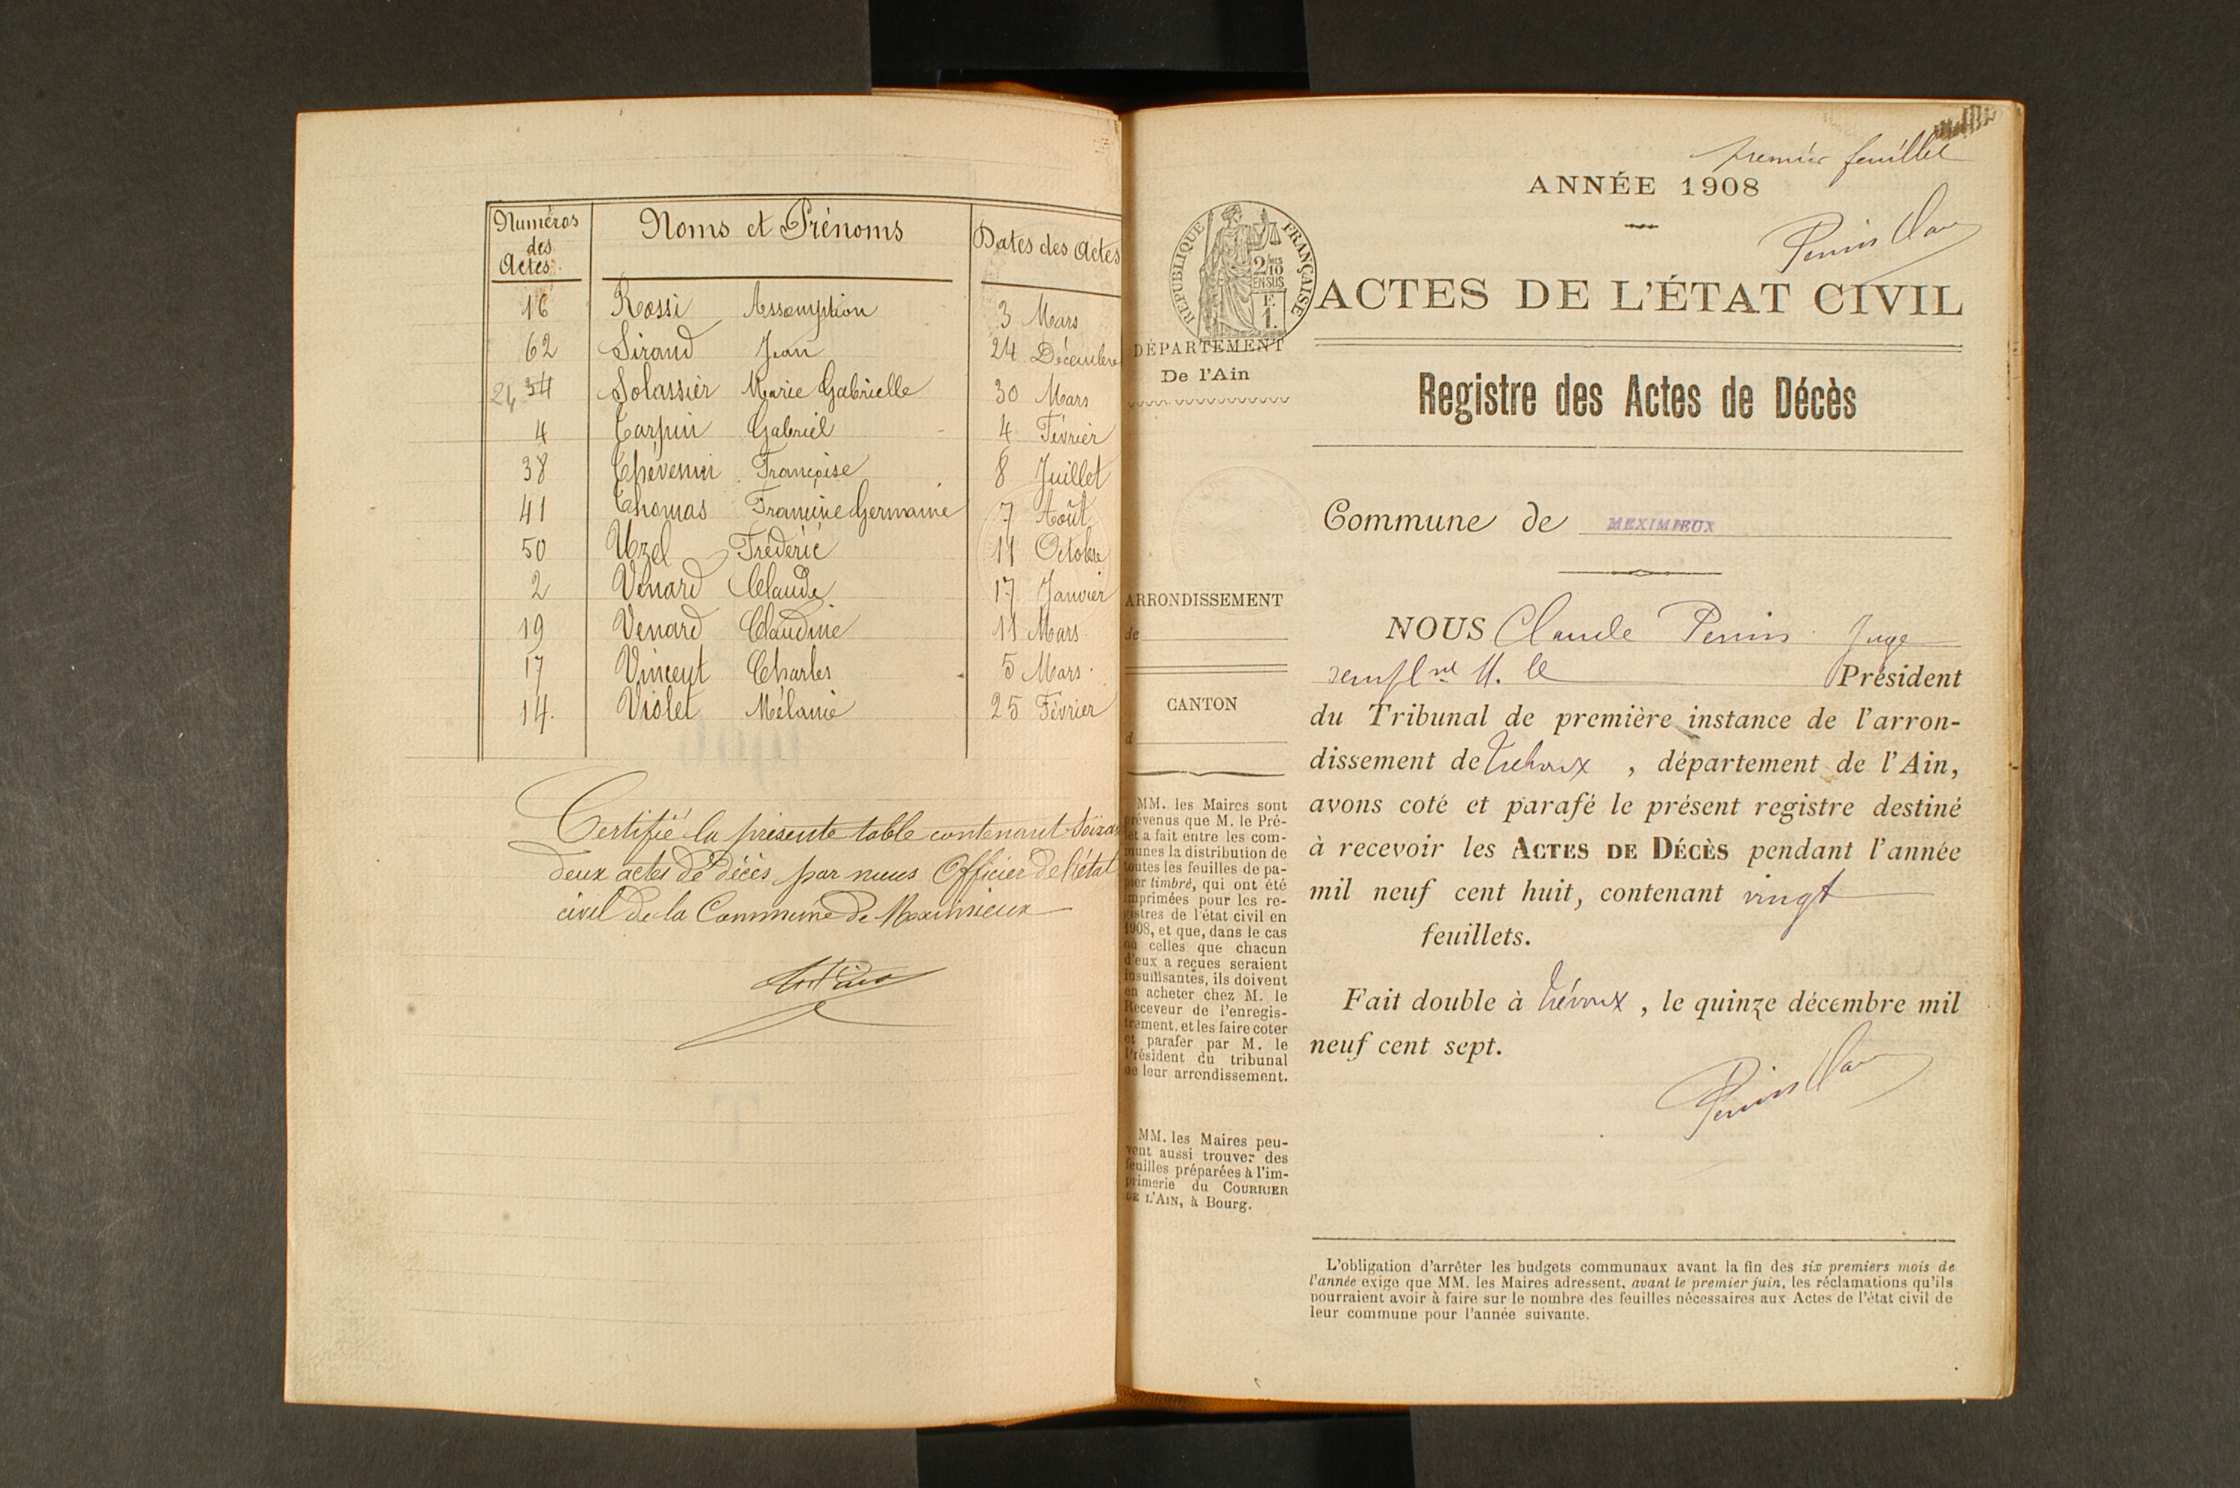 Numéros des Actes. Noms et Prénoms Dates des Actes
16 Rossi Assomption 3 Mars
62 Siraud Jean 24 Décembre
24 34 Solassier Marie Gabrielle 30 Mars
4 Tarpin Gabriel 4 Février
38 Thévenin Françoise 8 Juillet
41 Thomas Francine Germaine 7 Août
50 Uzel Frédéric 11 Octobre
2 Venard Claude 17 Janvier
19 Venard Claudine 11 Mars
17 Vincent Charles 5 Mars.
14. Violet Mélanie 25 Février
Certifié la présente table contenant
deux actes de décès par nous Officier de l'état
civil de la Commune de Meximieux
premier feuillet
ANNÉE 1908
RÉPUBLIQUE FRANÇAISE
2/10
EN SUS
F.
1.
ACTES DE L'ÉTAT CIVIL
DÉPARTEMENT
De l'Ain
Registre des Actes de Décès
Commune de MEXIMIEUX
ARRONDISSEMENT
de
CANTON
d
MM. les Maires sont
prévenus que M. le Pré-
fet a fait entre les com-
munes la distribution de
toutes les feuilles de pa-
pier timbré, qui ont été
imprimées pour les re-
gistres de l'état civil en
1908, et que, dans le cas
où celles que chacun
d'eux a reçues seraient
insuffisantes, ils doivent
en acheter chez M. le
Receveur de l'enregis-
trement, et les faire coter
et parafer par M. le
Président du tribunal
de leur arrondissement.
MM. les Maires peu-
vent aussi trouver des
feuilles préparées à l'im-
primerie du COURRIER
DE L'AIN, à Bourg.
NOUS Claude Perrin Juge
rempl nt M. le Président
du Tribunal de première instance de l'arron-
dissement de Trévoux, département de l'Ain,
avons coté et parafé le présent registre destiné
à recevoir les ACTES DE DÉCÈS pendant l'année
mil neuf cent huit, contenant vingt
feuillets.
Fait double à Trévoux, le quinze décembre mil
neuf cent sept.
L'obligation d'arrêter les budgets communaux avant la fin des six premiers mois de
l'année exige que MM. les Maires adressent, avant le premier juin, les réclamations qu'ils
pourraient avoir à faire sur le nombre des feuilles nécessaires aux Actes de l'état civil de
leur commune pour l'année suivante.